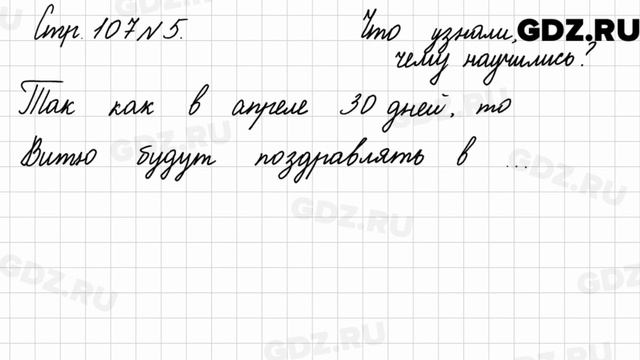 Стр. 107 № 5.
Что узнали,
чему научились?
GDZ.RU
Так как в апреле 30 дней, то
Витю будут поздравлять в ...
GDZ.RU
GDZ.RU
GDZ.RU
GDZ.RU
GDZ.RU
GDZ.RU
GDZ.RU